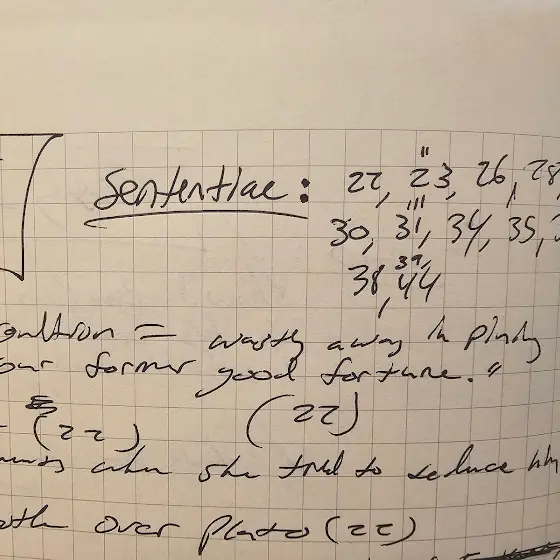 Sentientiae: 22, 23, 26, 28
30, 31, 34, 35,
38, 39, 44
= wasting away in pining
our former good fortune."
(22) (22)
when she tried to seduce him
over Plato (22)